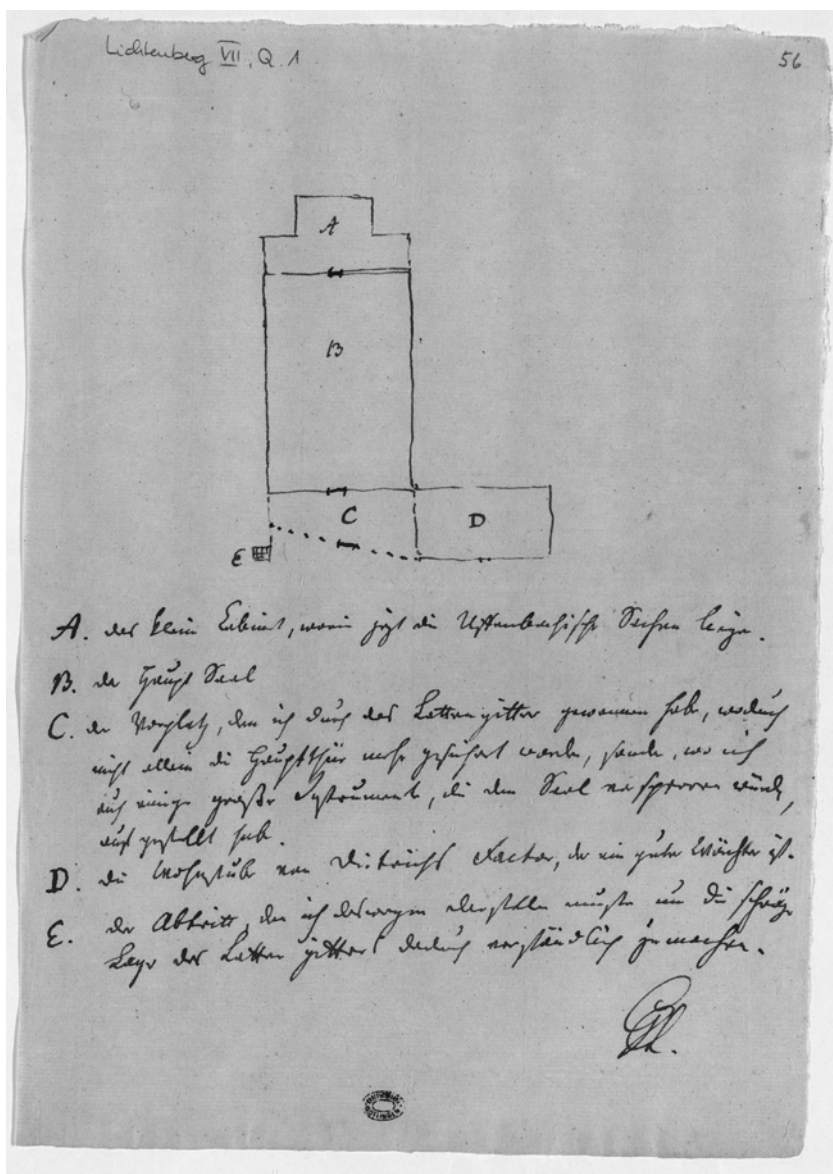 Lichtenberg VII, Q. 1
56
A
B
C
D
E
A. das kleine Cabinet, worin jezt die Uffenbachische Sachen liegen.
B. der Haupt Saal
C. der Vorplatz, den ich durch das Lattengitter gewonnen habe, wodurch
nicht allein die Hauptthür mehr gesichert worden, sondern, wo ich
auch einige große Instrumente, die den Saal versperren würden,
aufgestellt habe.
D. die Wohnstube von Dietrichs Factor, der ein guter Wächter ist.
E. der Abtritt, den ich deswegen darstellen mußte um die schräge
Lage des Latten gitters dadurch verständlich zu machen.